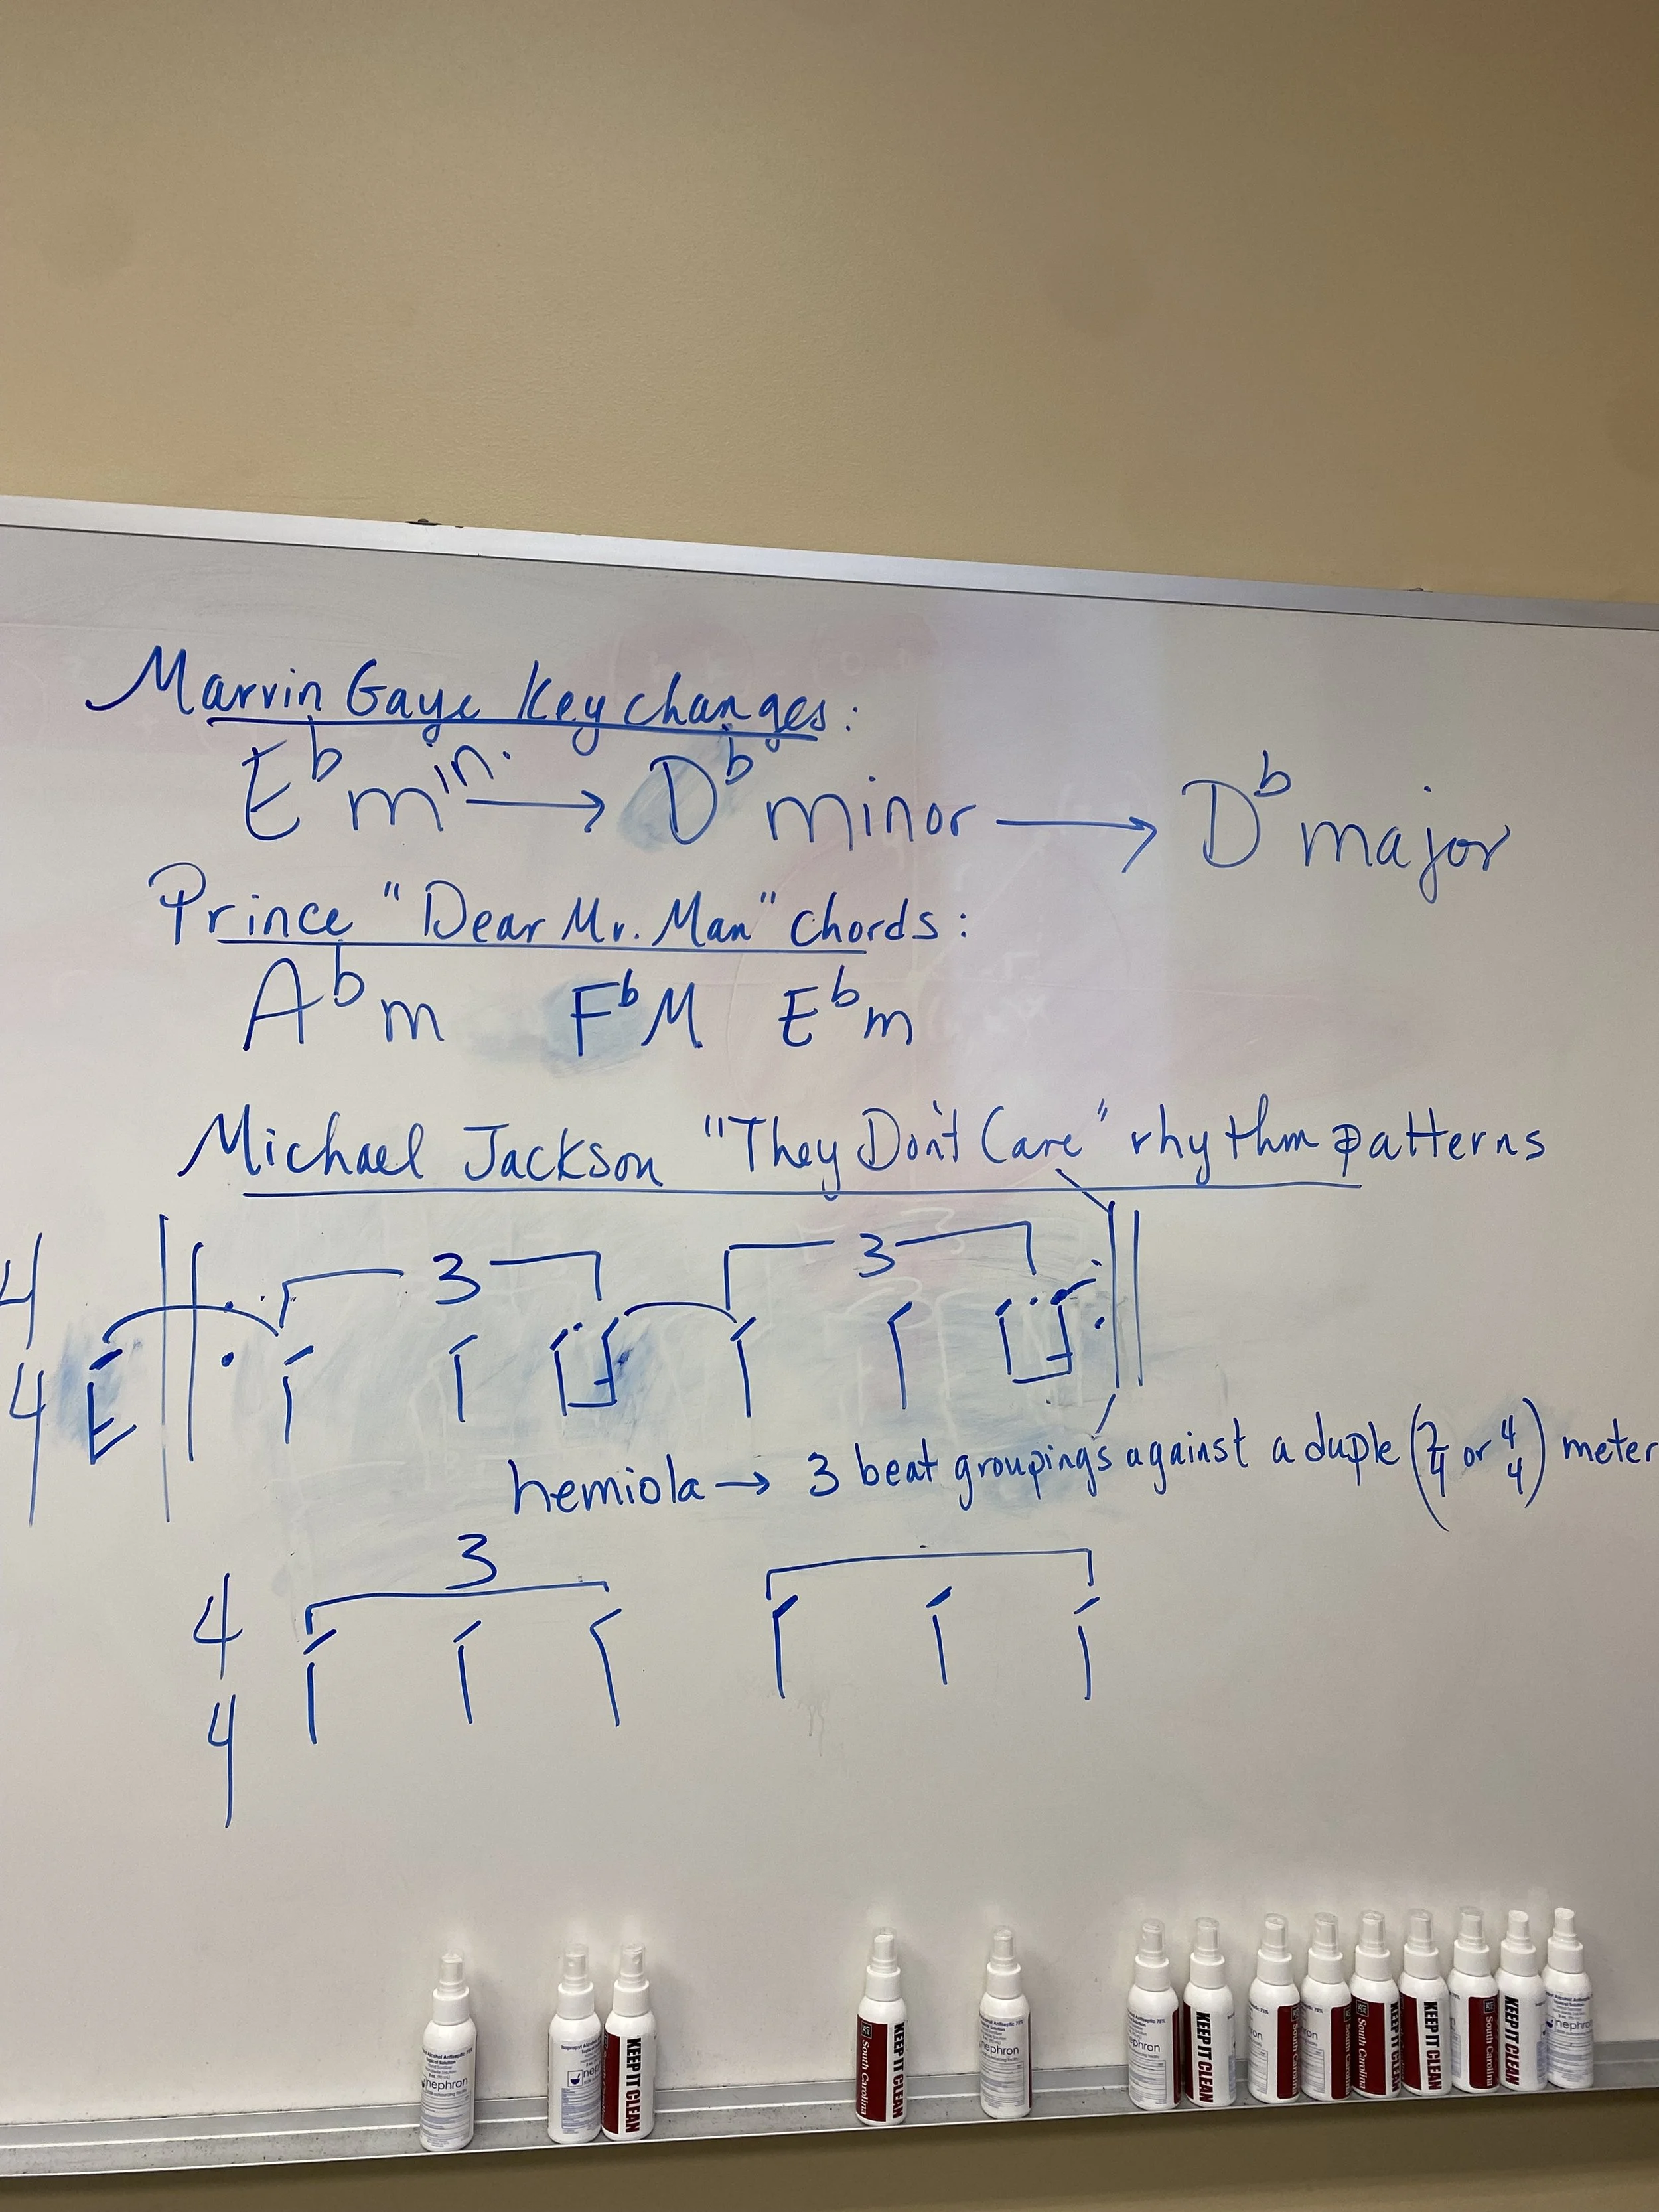 Marvin Gaye Key changes:
E♭ min. → D♭ minor → D♭ major
Prince "Dear Mr. Man" chords:
A♭m F♭M E♭m
Michael Jackson "They Don't Care" rhythm patterns
4
4
3 3
hemiola → 3 beat groupings against a duple (2/4 or 4/4) meter
3
4
4
nephron
nephron
KEEP IT CLEAN
South Carolina
KEEP IT CLEAN
nephron
nephron
KEEP IT CLEAN
South Carolina
South Carolina
KEEP IT CLEAN
South Carolina
KEEP IT CLEAN
nephron